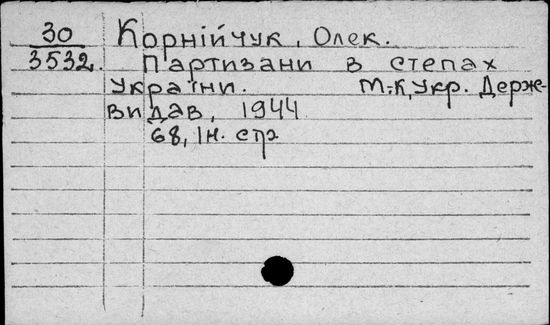 30 Корнійчук, Олек.
3532. Партизани в степах
України. М.-К, Укр. Держ-
видав, 1944
68, Ін. стр